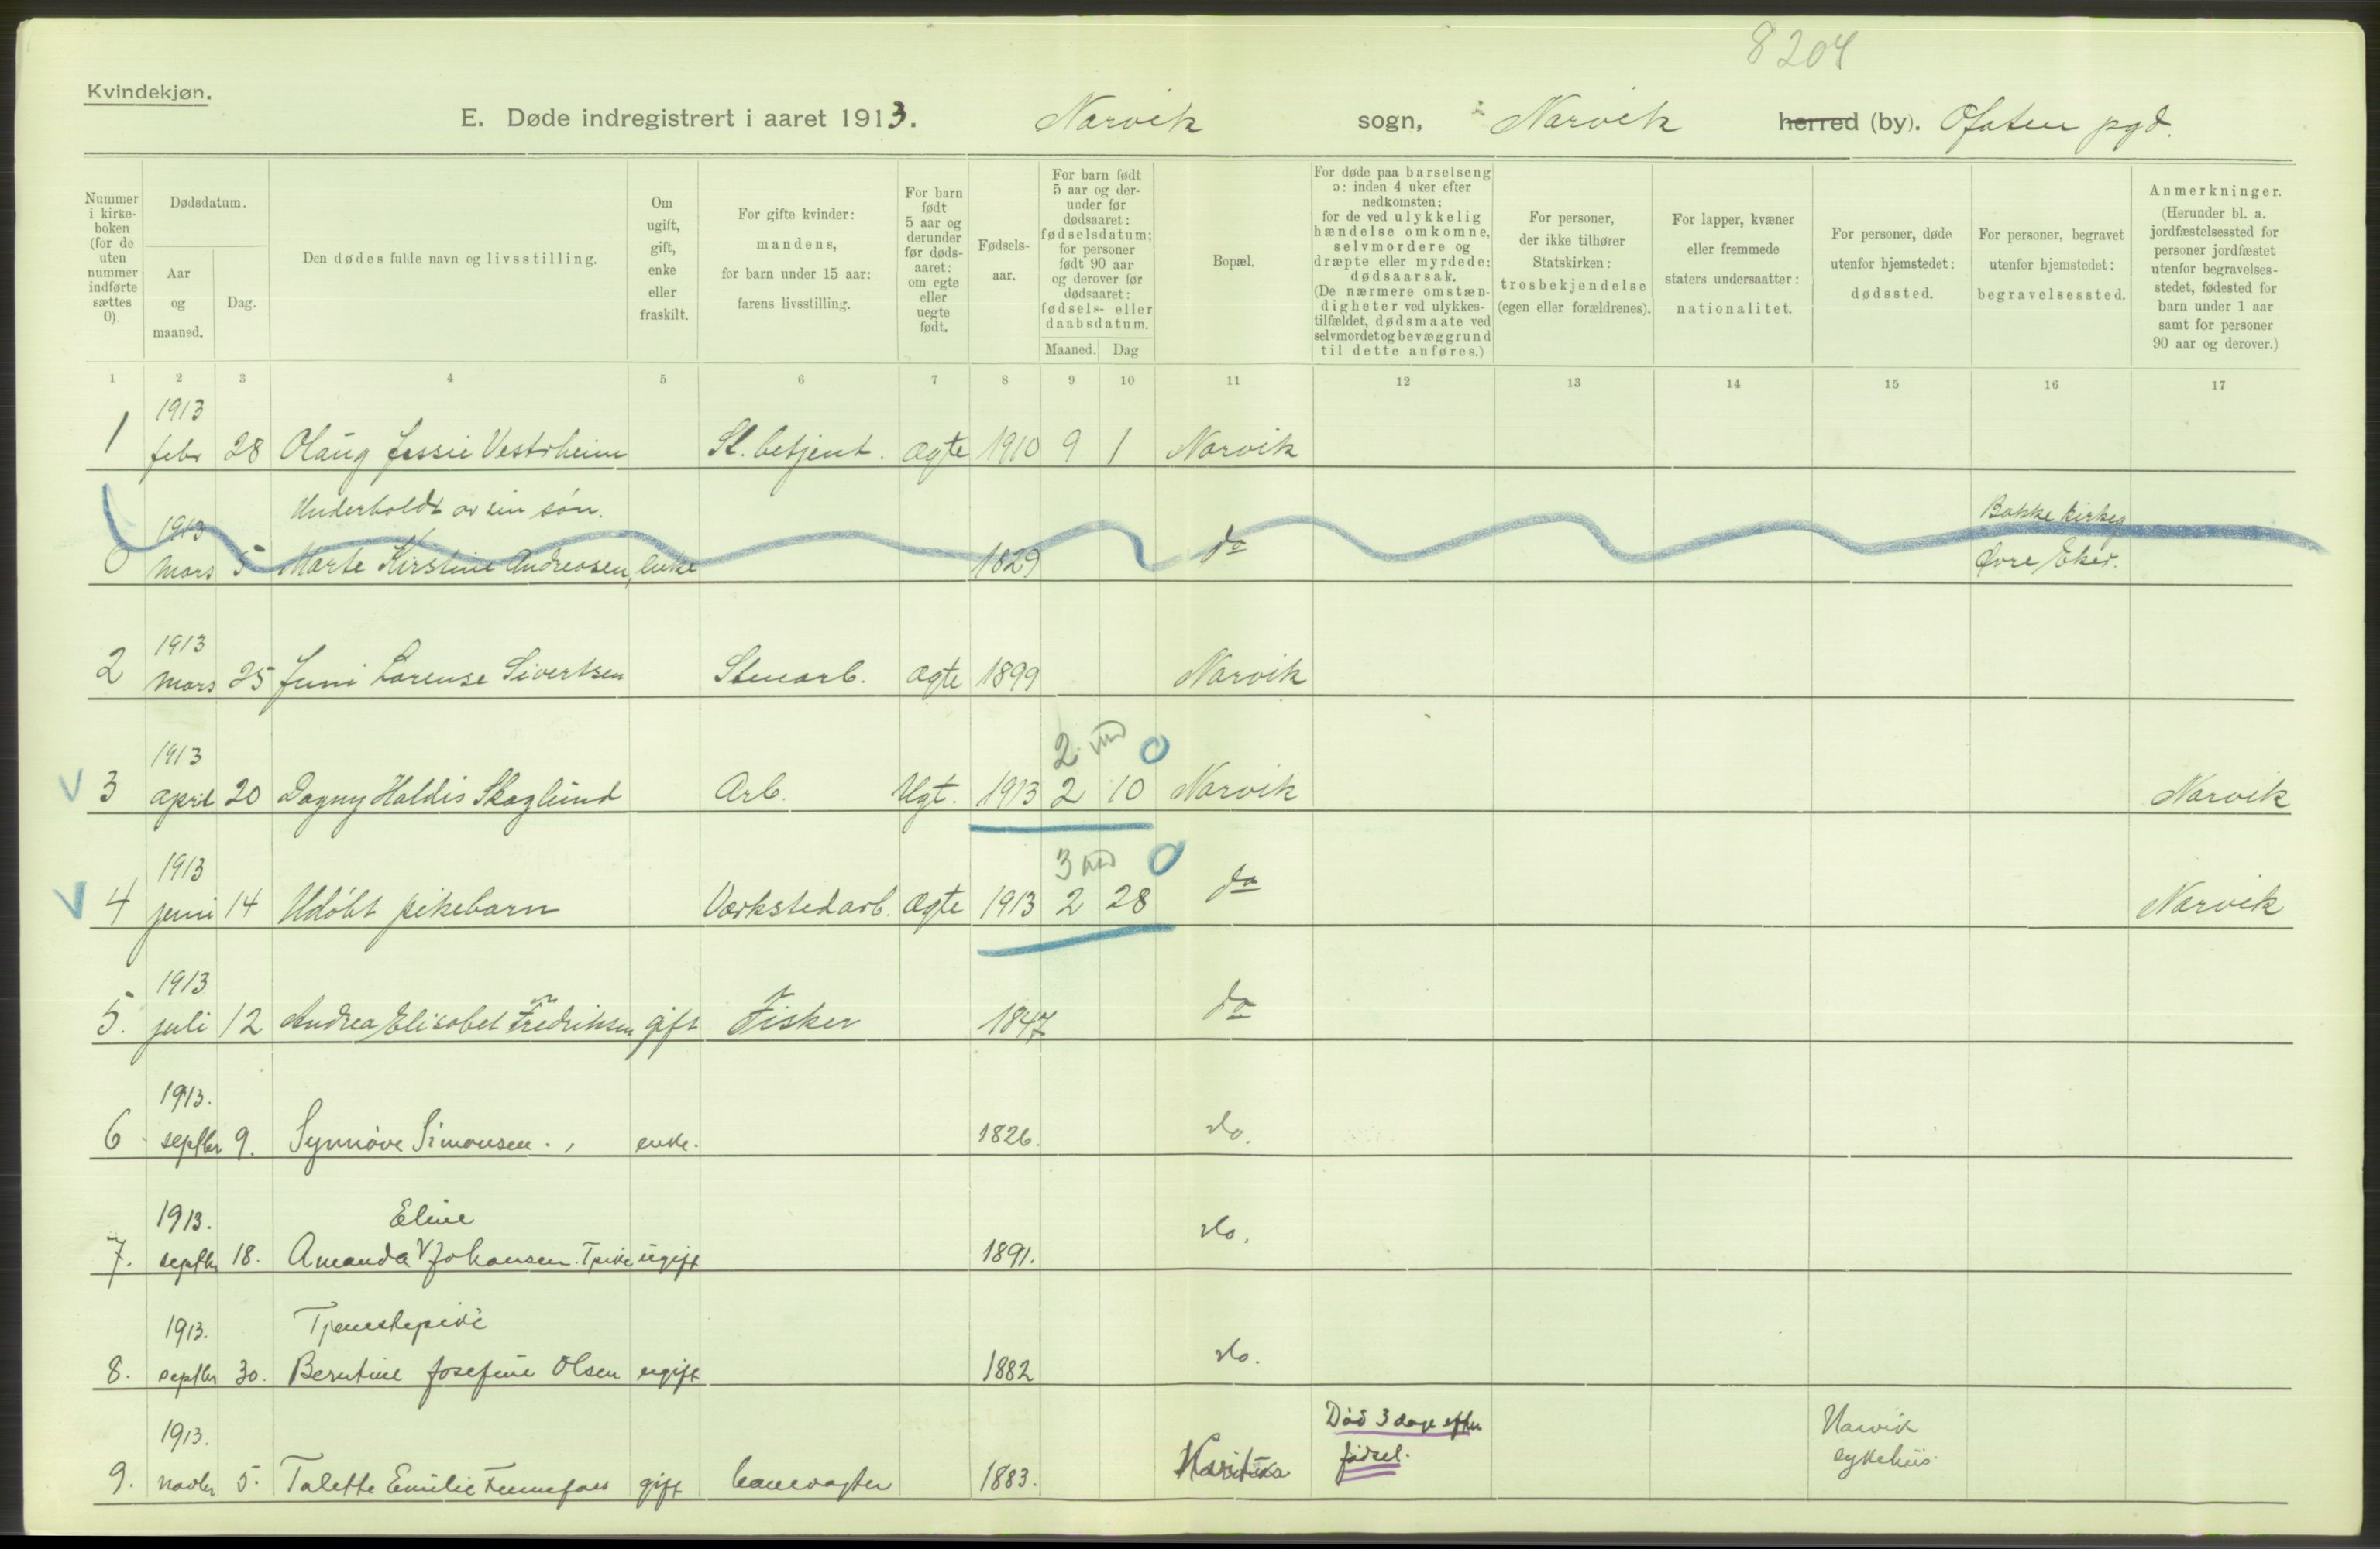 8204
Kvindekjøn.
E. Døde indregistrert i aaret 1913. Narvik sogn, Narvik herred (by). Ofoten pgd.
Nummer i kirkeboken (for de uten nummer indførte sættes 0).
Dødsdatum.
Aar og maaned.
Dag.
Den dødes fulde navn og livsstilling.
Om ugift, gift, enke eller fraskilt.
For gifte kvinder: mandens, for barn under 15 aar: farens livsstilling.
For barn født 5 aar og derunder før dødsaaret: om egte eller uegte født.
Fødselsaar.
For barn født 5 aar og derunder før dødsaaret: fødselsdatum; for personer født 90 aar og derover før dødsaaret: fødsels- eller daabsdatum.
Maaned. Dag
Bopæl.
For døde paa barselseng ɔ: inden 4 uker efter nedkomsten: for de ved ulykkelig hændelse omkomne, selvmordere og dræpte eller myrdede: dødsaarsak. (De nærmere omstændigheter ved ulykkestilfældet, dødsmaate ved selvmordet og bevæggrund til dette anføres.)
For personer, der ikke tilhører Statskirken: trosbekjendelse (egen eller forældrenes).
For lapper, kvæner eller fremmede staters undersaatter: nationalitet.
For personer, døde utenfor hjemstedet: dødssted.
For personer, begravet utenfor hjemstedet: begravelsessted.
Anmerkninger. (Herunder bl. a. jordfæstelsessted for personer jordfæstet utenfor begravelsesstedet, fødested for barn under 1 aar samt for personer 90 aar og derover.)
1 2 3 4 5 6 7 8 9 10 11 12 13 14 15 16 17
1913
1 febr 28 Olaug Jessie Vestrheim St. betjent. ægte 1910 9 1 Narvik
Underholdt av sin søn. Bakke kirkeg
1913
0 mars 5 Marte Kirstine Andreasen, enke 1829 do Øvre Eker.
1913
2 mars 25 Jenni Lorense Sivertsen Stenarb. ægte 1899 Narvik
2 md 0
1913
3 april 20 Dagny Haldis Skoglund Arb. Uægt. 1913 2 10 Narvik Narvik
3 md 0
1913
4 juni 14 Udøbt pikebarn Værkstedarb. ægte 1913 2 28 do Narvik
1913
5. juli 12 Andrea Elisabet Fredriksen gift Fisker 1847 do
1913.
6 septbr 9. Synnøve Simonsen. enke. 1826. do.
1913. Eline
7. septbr 18. Amanda V Johansen. Tpike ugift 1891. do.
1913. Tjenestepike
8. septbr 30. Berntine Josefine Olsen ugift 1882 do.
1913. Død 3 dage efter Narvik
9. novbr 5. Talette Emilie gift banevogter 1883. fødsel. sykehus.